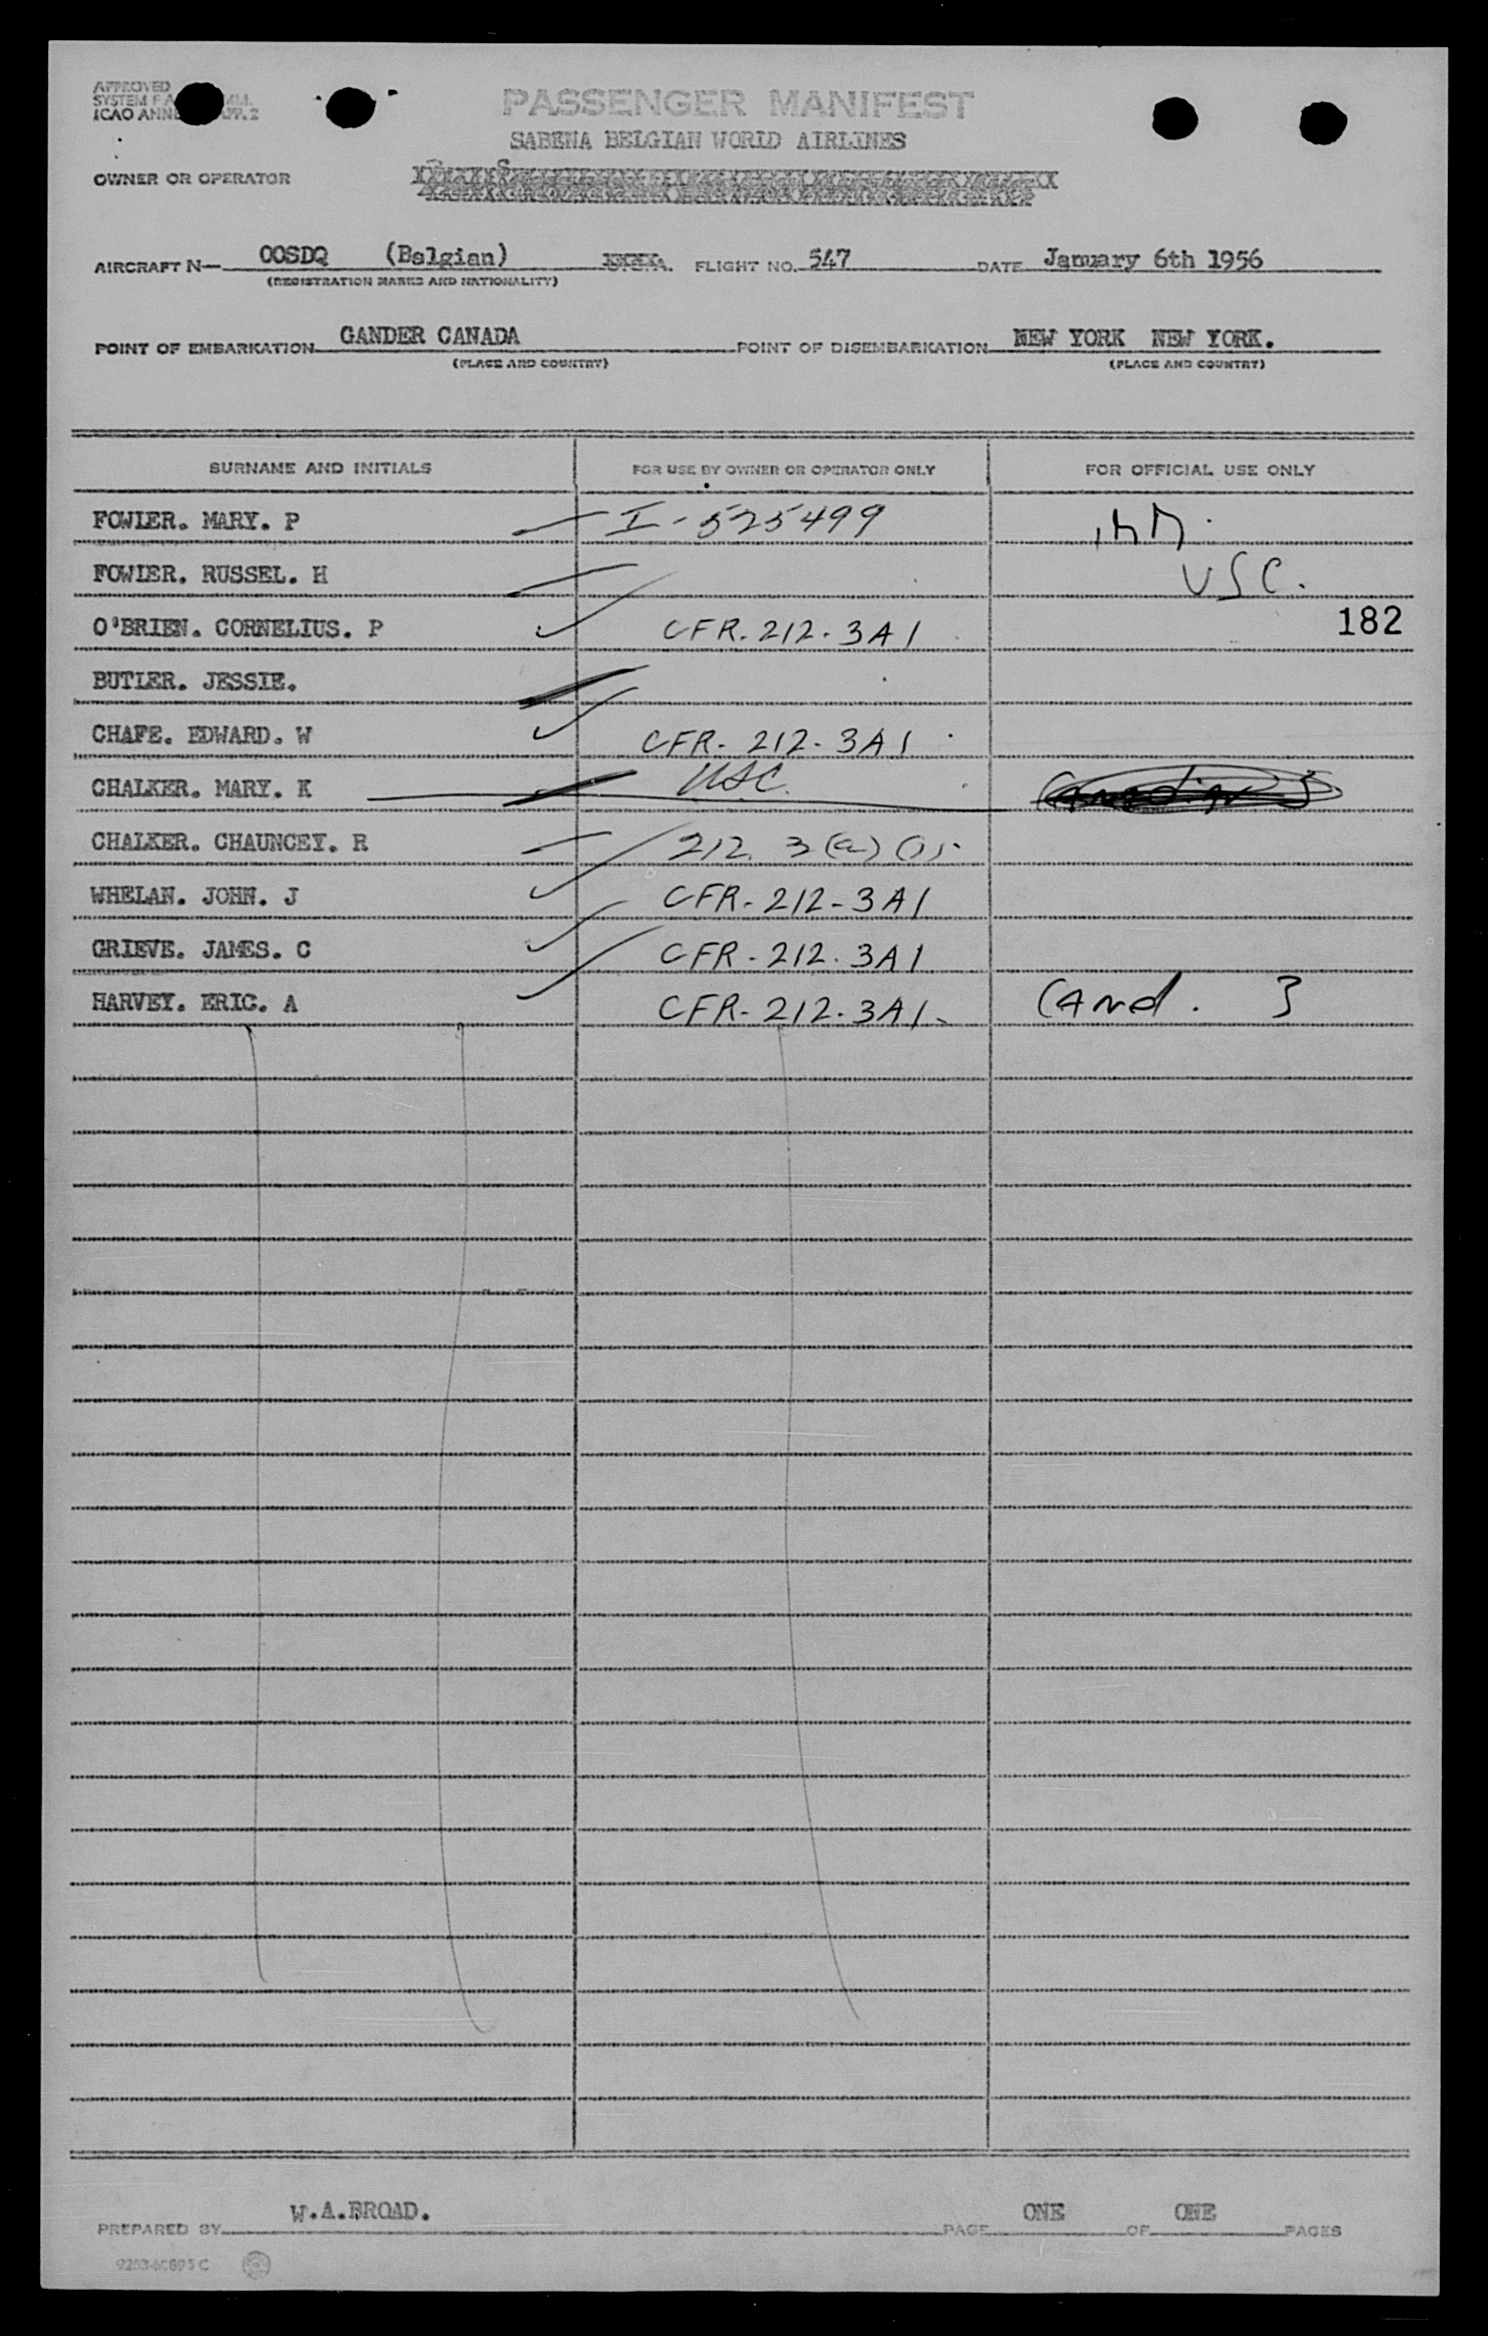 APPROVED
SYSTEM F A
ICAO ANNE
PASSENGER MANIFEST
SABENA BELGIAN WORLD AIRLINES
OWNER OR OPERATOR
AIRCRAFT N— OOSDQ (Belgian) FLIGHT NO. 547 DATE January 6th 1956
(REGISTRATION MARKS AND NATIONALITY)
POINT OF EMBARKATION GANDER CANADA POINT OF DISEMBARKATION NEW YORK NEW YORK.
(PLACE AND COUNTRY) (PLACE AND COUNTRY)
SURNAME AND INITIALS FOR USE BY OWNER OR OPERATOR ONLY FOR OFFICIAL USE ONLY
FOWLER. MARY. P I-525499 IMM.
FOWLER. RUSSEL. H USC.
O'BRIEN. CORNELIUS. P CFR. 212. 3A1 182
BUTLER. JESSIE.
CHAFE. EDWARD. W CFR- 212- 3A1
CHALKER. MARY. K USC.
CHALKER. CHAUNCEY. R 212. 3(a)(1).
WHELAN. JOHN. J CFR- 212- 3A1
GRIEVE. JAMES. C CFR- 212. 3A1
HARVEY. ERIC. A CFR- 212. 3A1- Cand. 3
W.A.BROAD. ONE ONE
PREPARED BY PAGE OF PAGES